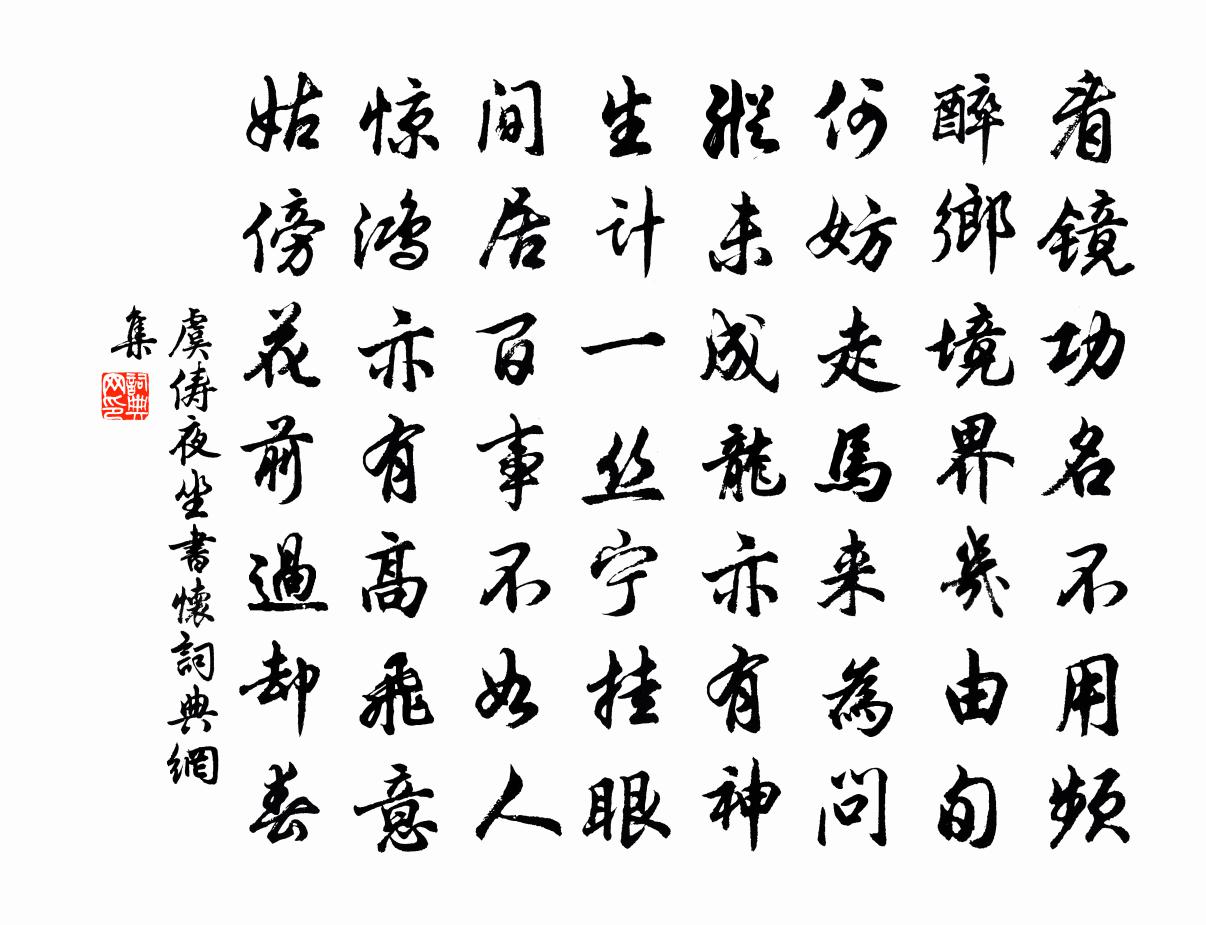 看镜功名不用频
醉鄉境界幾由旬
何妨走馬来為問
縱未成龍亦有神
生计一丝宁挂眼
间居百事不如人
惊鸿亦有高飛意
姑傍花前過却春
虞俦夜坐書懷詞典網
集
詞典
网印